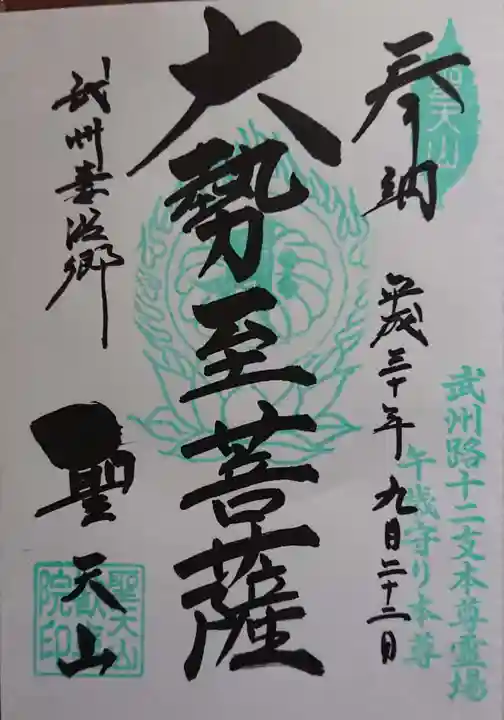 聖天山
奉納
平成三十年九月二十二日
武州路十二支本尊霊場
午歳守り本尊
大勢至菩薩
武州妻沼郷
聖天山
聖天山
歓喜
院印